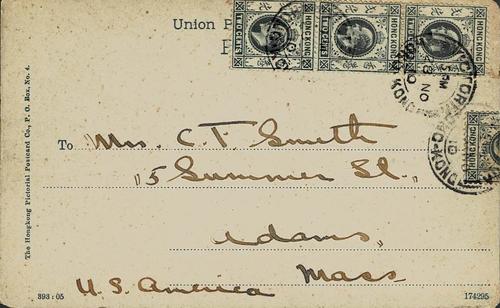 Union P
TWO CENTS HONGKONG
TWO CENTS HONGKONG
TWO CENTS HONGKONG
HONGKONG
To Mrs. C. T. Smith
15 Summer St.,
Adams,
Mass
U.S. America
The Hongkong Pictorial Postcard Co., P. O. Box, No. 4.
393:05
174295